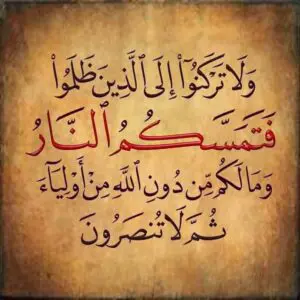 وَلَا تَرْكَنُوٓا۟ إِلَى ٱلَّذِينَ ظَلَمُوا۟
فَتَمَسَّكُمُ ٱلنَّارُ
وَمَا لَكُم مِّن دُونِ ٱللَّهِ مِنْ أَوْلِيَآءَ
ثُمَّ لَا تُنصَرُونَ